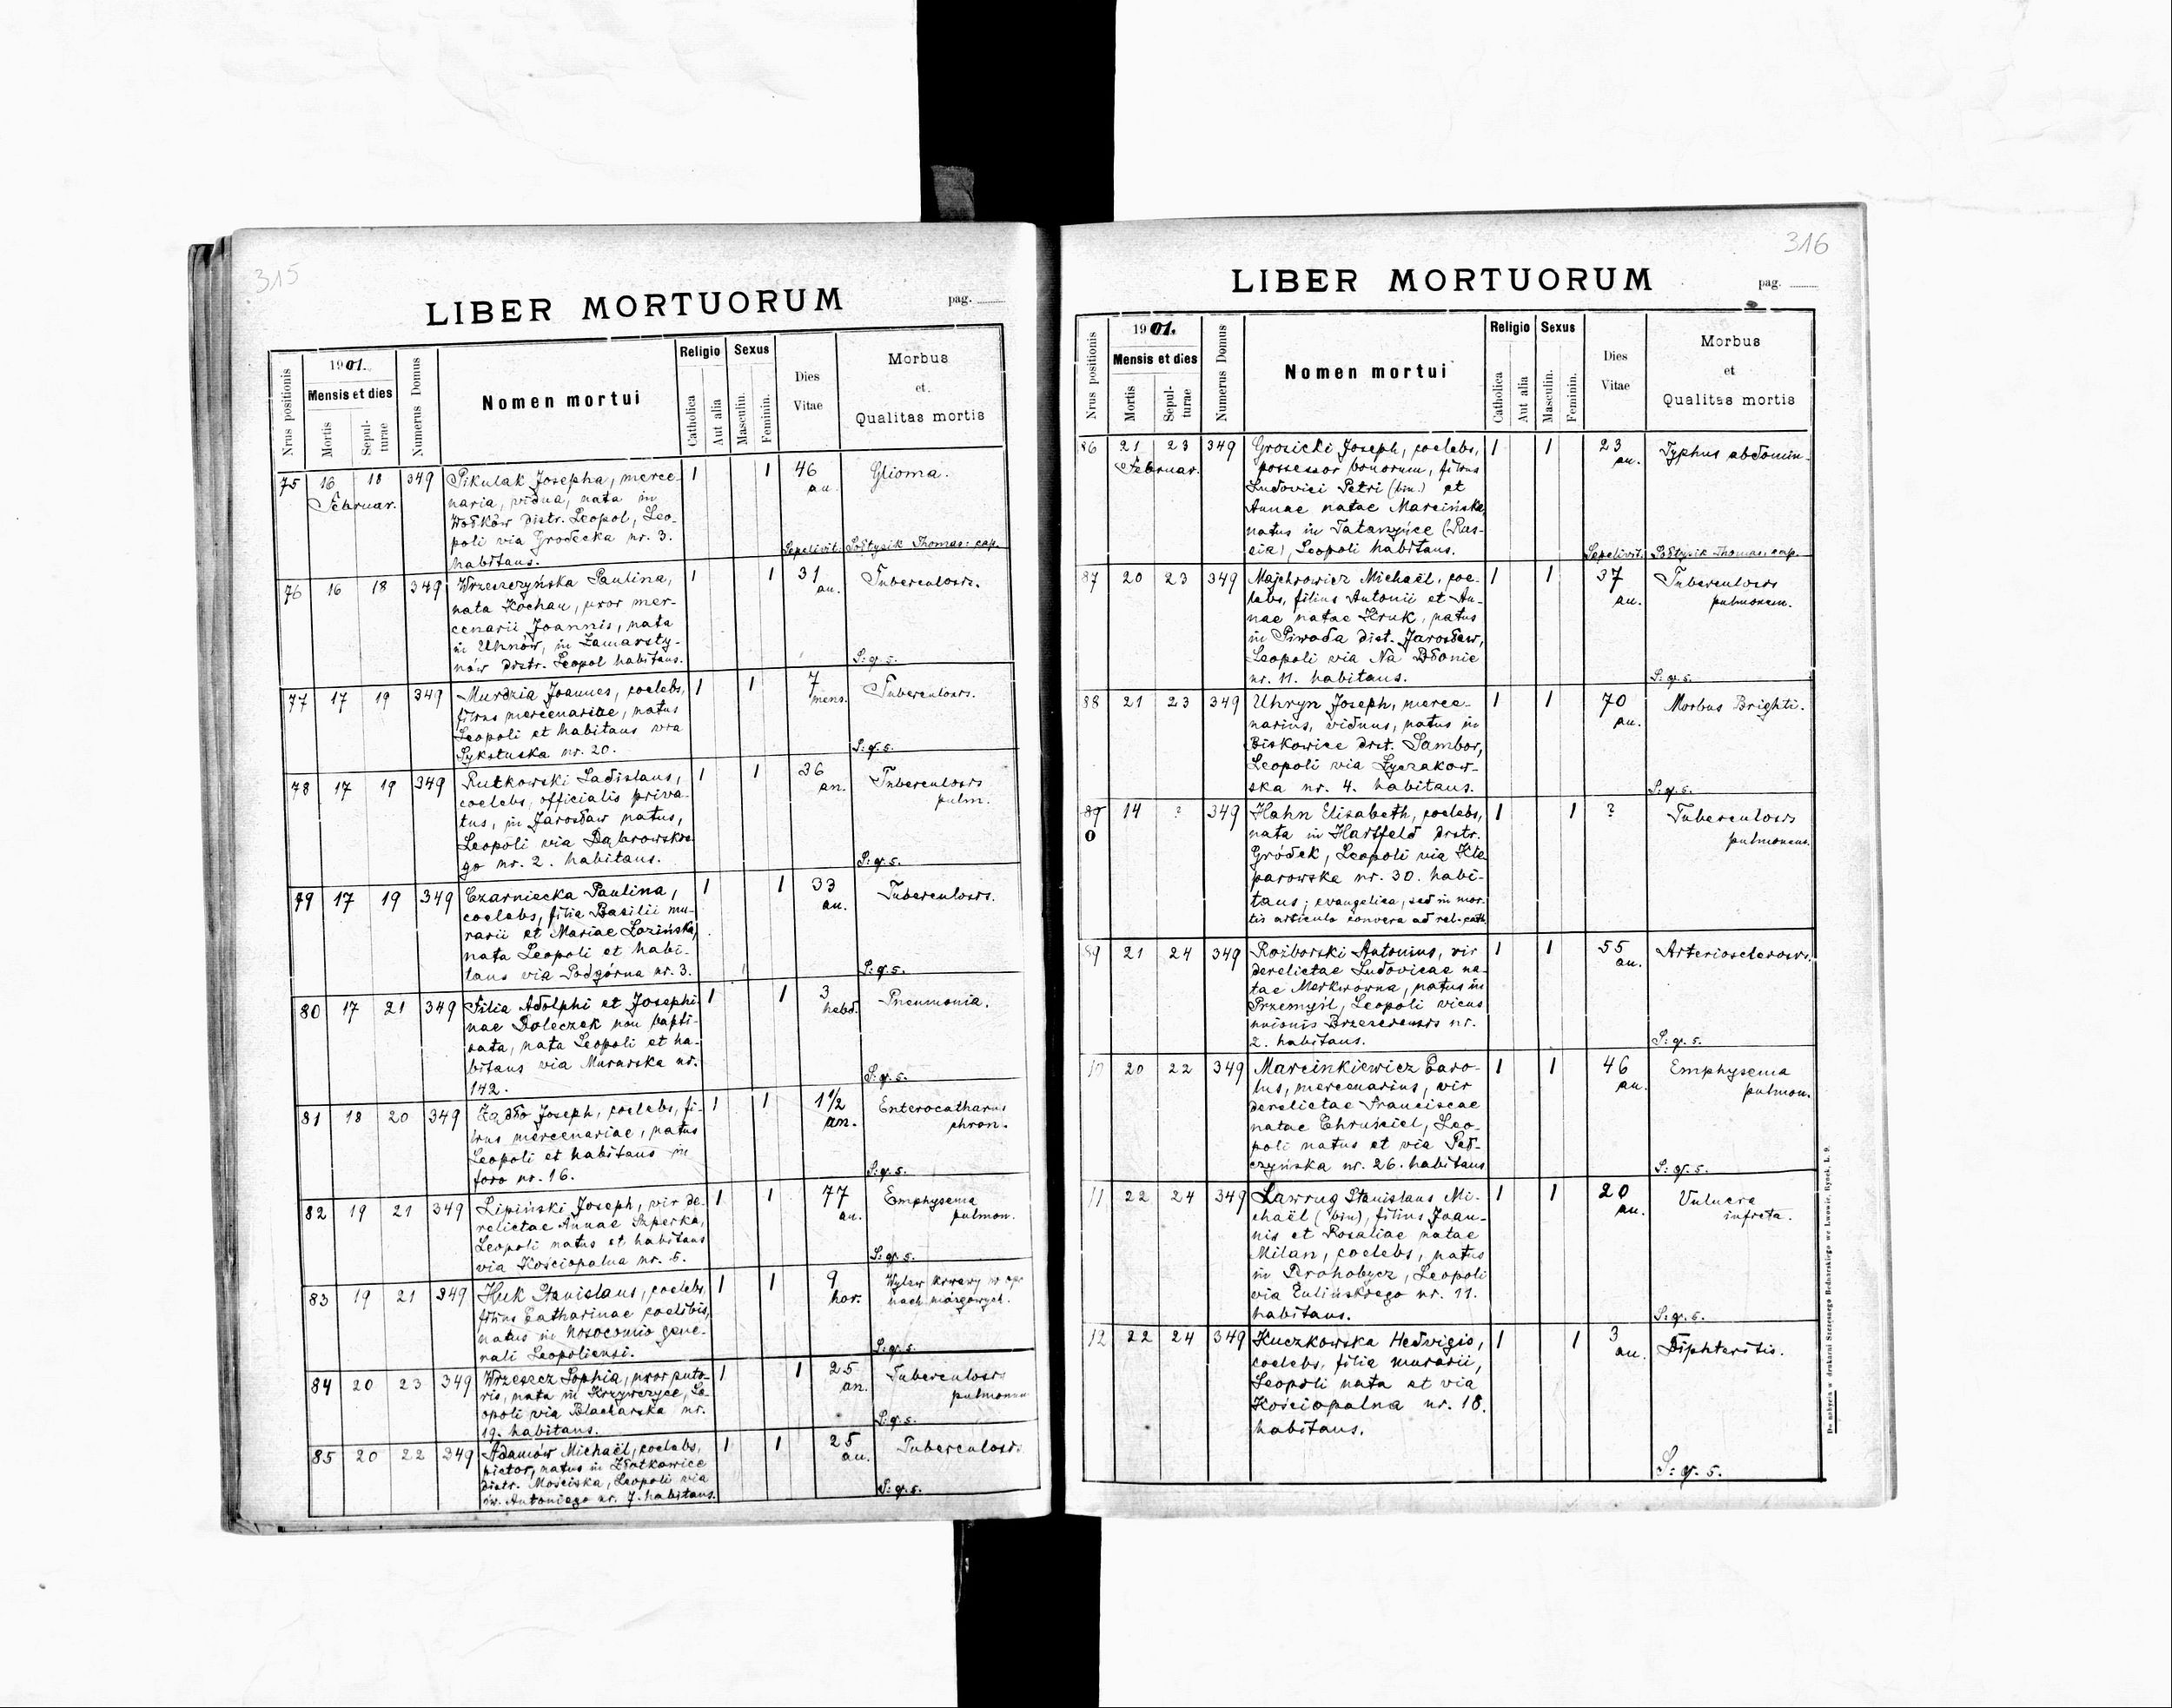 315
LIBER MORTUORUM
pag.
Nrus positionis
1901.
Mensis et dies
Mortis
Sepulturae
Numerus Domus
Nomen mortui
Religio
Catholica
Aut alia
Sexus
Masculin.
Feminin.
Dies
Vitae
Morbus
et
Qualitas mortis
75 16 18 349 Pikulak Josepha, merce- 1 1 46 Glioma.
Februar. naria, vidua, nata in an.
Wołków distr. Leopol, Leo-
poli via Grodecka nr. 3.
habitans. Sepelivit: Sołtysik Thomas: cap.
76 16 18 349 Wrzeszczyńska Paulina, 1 1 31 Tuberculosis.
nata Kochan, uxor mer- an.
cenarii Joannis, nata
in Uhnów, in Zamarsty-
nów distr. Leopol habitans. S: q. s.
77 17 19 349 Murdzia Joannes, coelebs, 1 1 7 Tuberculosis.
filius mercenariae, natus mens.
Leopoli et habitans via
Sykstuska nr. 20. S: q. s.
78 17 19 349 Rutkowski Ladislaus, 1 1 36 Tuberculosis
coelebs, officialis priva- an. pulm.
tus, in Jarosław natus,
Leopoli via Dąbrowskie-
go nr. 2. habitans. S: q. s.
79 17 19 349 Czarniecka Paulina, 1 1 33 Tuberculosis.
coelebs, filia Basilii mu- an.
rarii et Mariae Łozińska,
nata Leopoli et habi-
tans via Podgórna nr. 3. S: q. s.
80 17 21 349 Filia Adolphi et Josephi- 1 1 3 Pneumonia.
nae Doleczek non bapti- hebd.
sata, nata Leopoli et ha-
bitans via Murarska nr.
142. S: q. s.
81 18 20 349 Żądło Joseph, coelebs, fi- 1 1 1 1/2 Enterocatharus
lius mercenariae, natus an. chron.
Leopoli et habitans in
foro nr. 16. S: q. s.
82 19 21 349 Lipiński Joseph, vir de- 1 1 77 Emphysema
relictae Annae Szperka, an. pulmon.
Leopoli natus et habitans
via Kościopalna nr. 5. S: q. s.
83 19 21 349 Huk Stanislaus, coelebs, 1 1 9 Wylew krwawy w opo-
filius Catharinae coelibis, hor. nach mózgowych.
natus in nosocomio gene-
rali Leopoliensi. S: q. s.
84 20 23 349 Wrzeszcz Sophia, uxor suto- 1 1 25 Tuberculosis
ris, nata in Krzywczyce, Le- an. pulmonum
opoli via Blacharska nr.
19. habitans. S: q. s.
85 20 22 349 Adamów Michaël, coelebs, 1 1 25 Tuberculosis.
pictor, natus in Złotkowice an.
distr. Mościska, Leopoli via
św. Antoniego nr. 7. habitans. S: q. s.
316
LIBER MORTUORUM
pag.
Nrus positionis
1901.
Mensis et dies
Mortis
Sepulturae
Numerus Domus
Nomen mortui
Religio
Catholica
Aut alia
Sexus
Masculin.
Feminin.
Dies
Vitae
Morbus
et
Qualitas mortis
86 21 23 349 Grosicki Joseph, coelebs, 1 1 23 Typhus abdomin.
Februar. possessor bonorum, filius an.
Ludovici Petri (bin.) et
Annae natae Marcińska,
natus in Tatarzyńce (Rus-
sia), Leopoli habitans. Sepelivit: Sołtysik Thomas, cap.
87 20 23 349 Majchrowicz Michaël, coe- 1 1 37 Tuberculosis
lebs, filius Antonii et An- an. pulmonum.
nae natae Kruk, natus
in Piwoda dist. Jarosław,
Leopoli via Na Błonie
nr. 11. habitans. S: q. s.
88 21 23 349 Uhryn Joseph, merce- 1 1 70 Morbus Brighti.
narius, viduus, natus in an.
Biskowice dist. Sambor,
Leopoli via Łyczakow-
ska nr. 4. habitans. S: q. s.
89 14 ? 349 Hahn Elisabeth, coelebs, 1 1 ? Tuberculosis
0 nata in Hartfeld distr. pulmonum.
Gródek, Leopoli via Kle-
parowska nr. 30. habi-
tans; evangelica, sed in mor-
tis articulo conversa ad rel. cath.
89 21 24 349 Rożborski Antonius, vir 1 1 55 Arteriosclerosis.
derelictae Ludovicae na- an.
tae Merkwówna, natus in
Przemyśl, Leopoli vicus
unionis Brzescensis nr.
2. habitans. S: q. s.
20 22 349 Marcinkiewicz Caro- 1 1 46 Emphysema
lus, mercenarius, vir an. pulmon.
derelictae Franciscae
natae Chruściel, Leo-
poli natus et via Peł-
czyńska nr. 26. habitans S: q. s.
22 24 349 Ławrus Stanislaus Mi- 1 1 20 Vulnera
chaël (bin), filius Joan- an. infecta.
nis et Rosaliae natae
Milan, coelebs, natus
in Drohobycz, Leopoli
via Zulińskiego nr. 11.
habitans. S: q. s.
22 24 349 Kuczkowska Hedvigis, 1 1 3 Diphteritis.
coelebs, filia murarii, an.
Leopoli nata et via
Kościopalna nr. 18.
habitans.
S: q. s.
Do nabycia w drukarni Szczęsnego Bednarskiego we Lwowie, Rynek, L. 9.